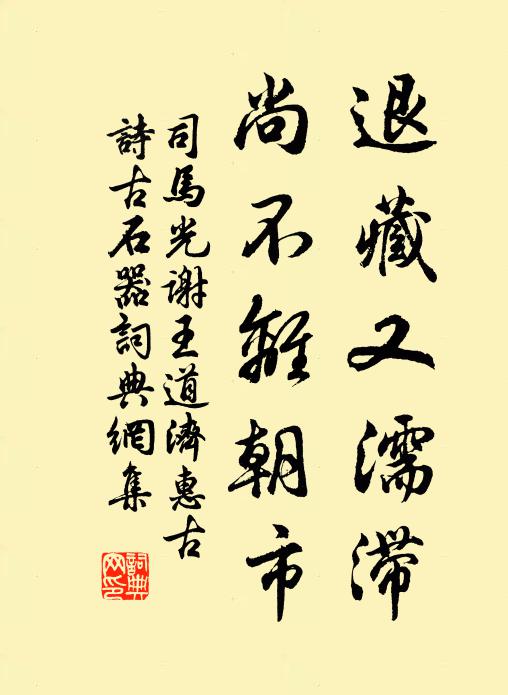 退藏又濡滯
尚不離朝市
司馬光謝王道濟惠古
詩古石器詞典網集
詞典
网印